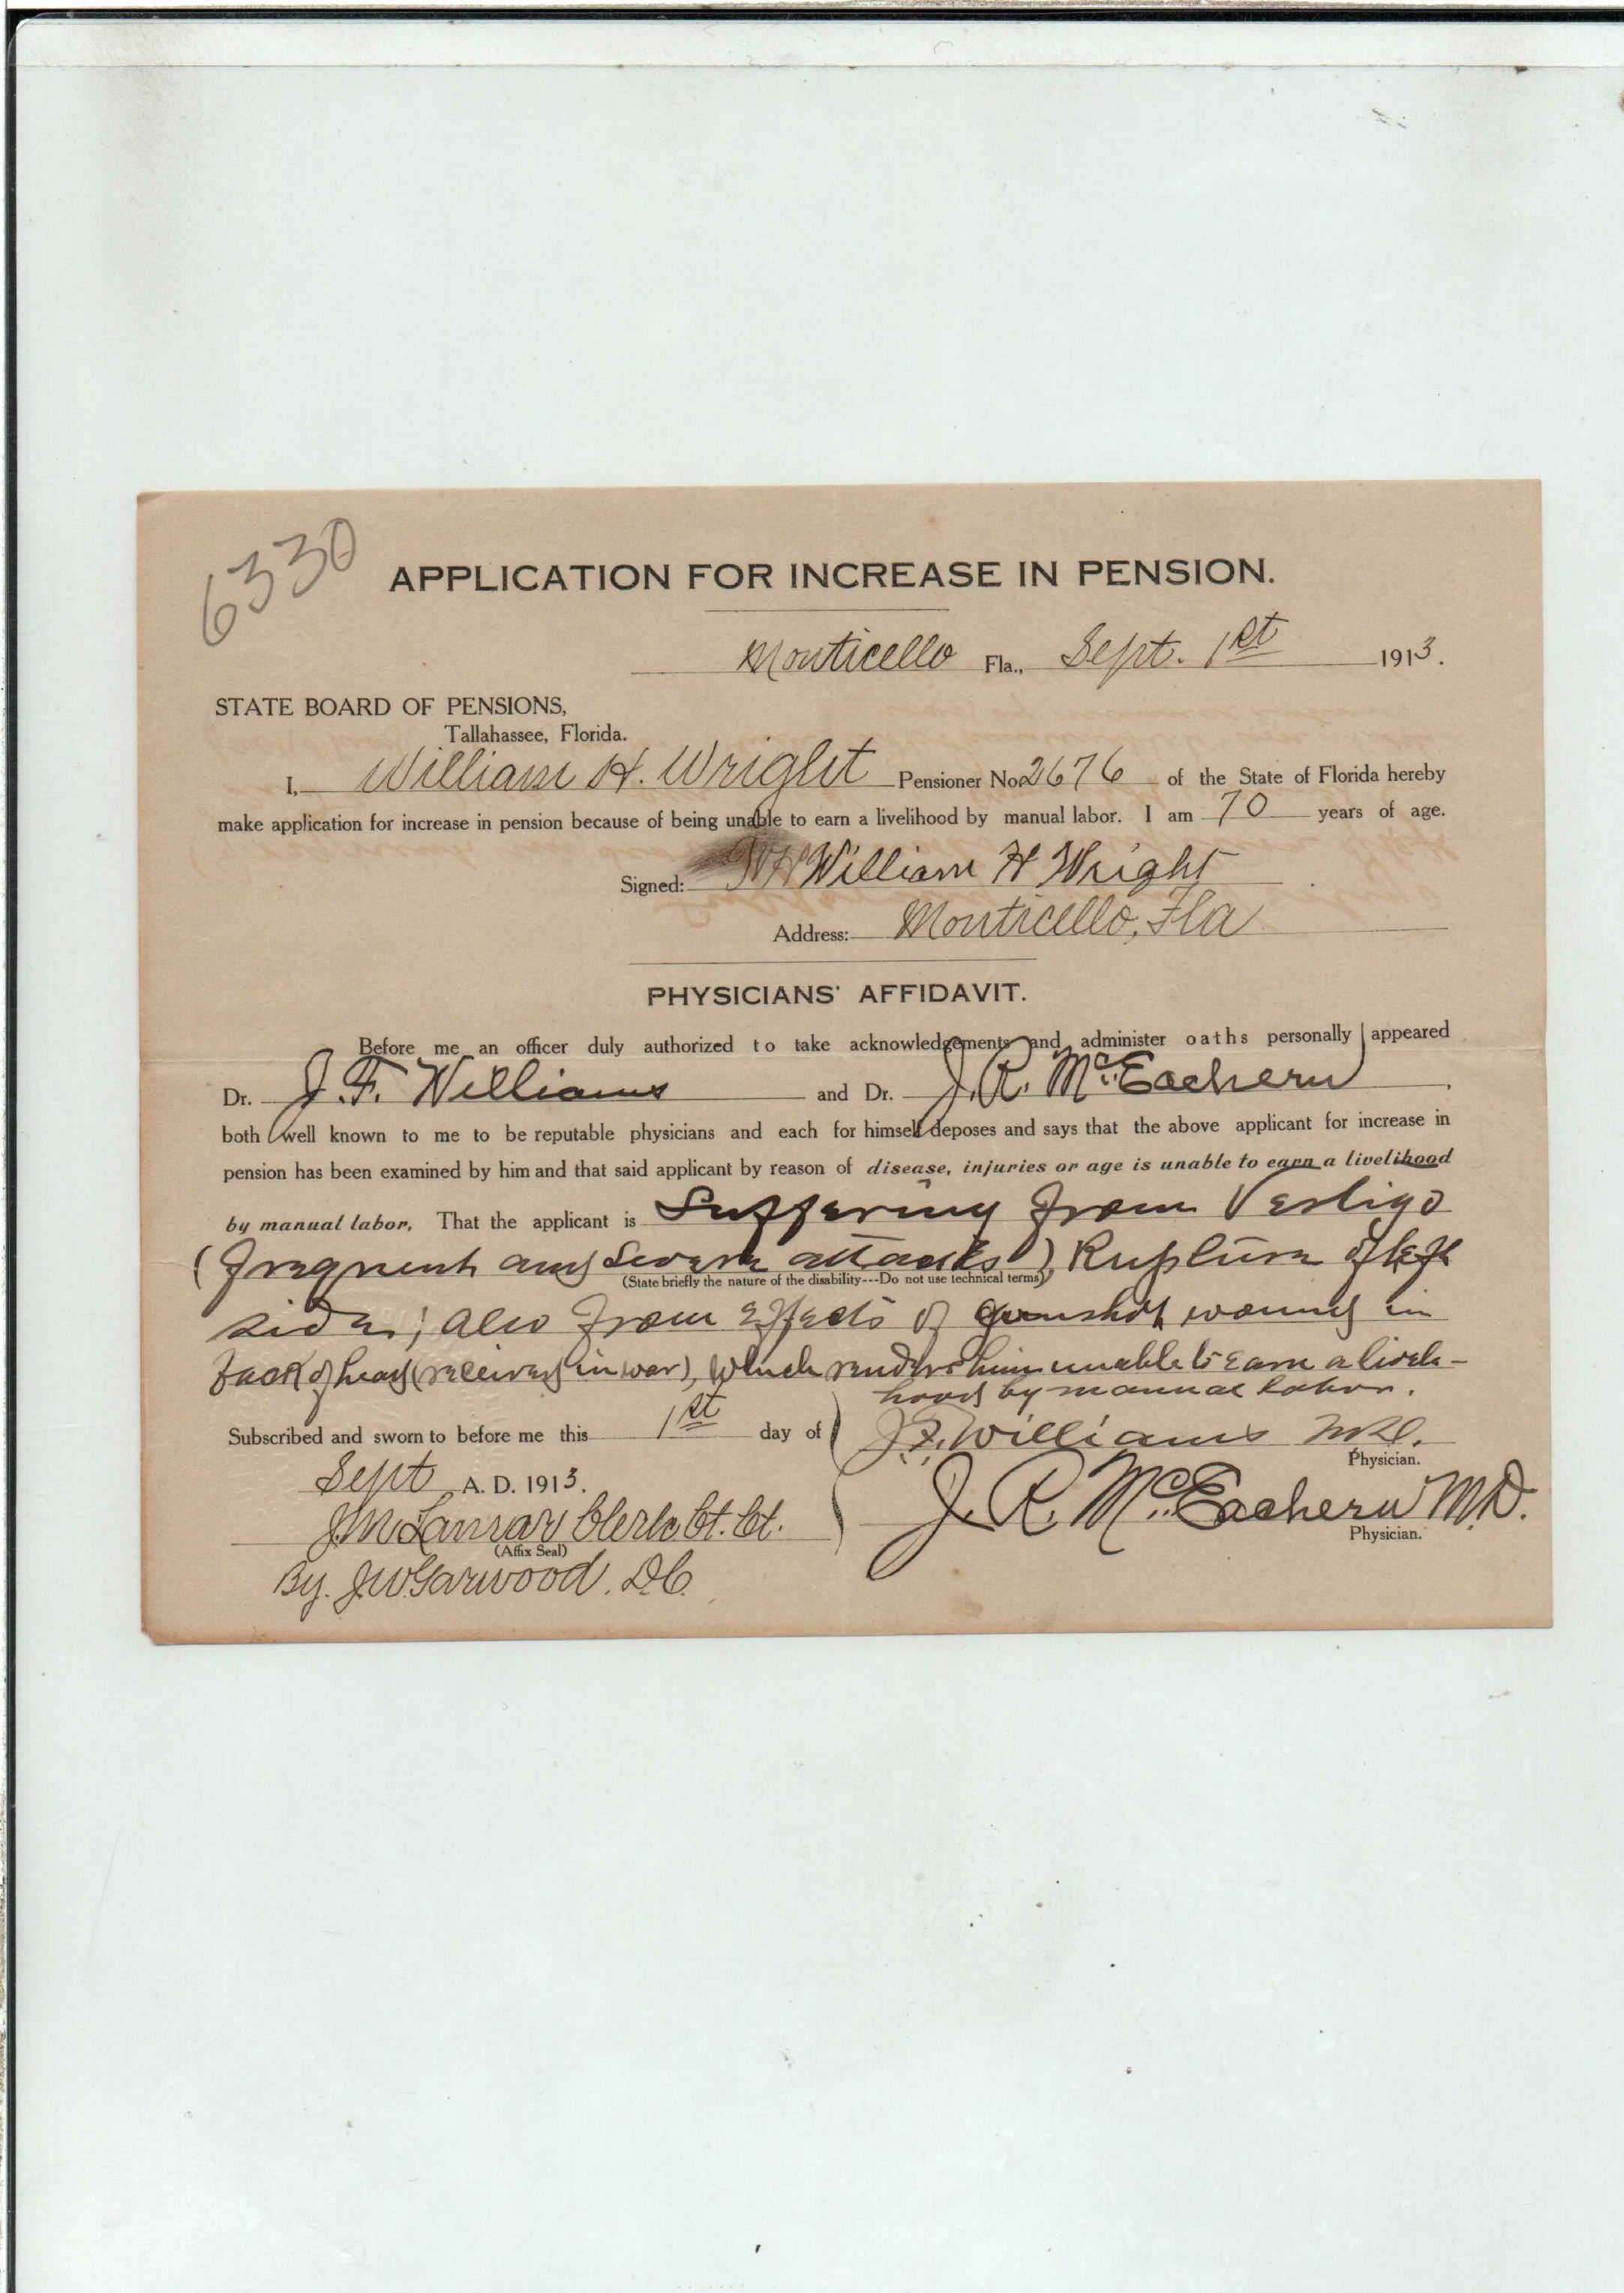 6330
APPLICATION FOR INCREASE IN PENSION.
Monticello Fla., Sept. 1st 1913.
STATE BOARD OF PENSIONS,
Tallahassee, Florida.
I, William H. Wright Pensioner No. 2676 of the State of Florida hereby
make application for increase in pension because of being unable to earn a livelihood by manual labor. I am 70 years of age.
Signed: William H Wright
Address: Monticello, Fla
PHYSICIANS' AFFIDAVIT.
Before me an officer duly authorized to take acknowledgements and administer oaths personally appeared
Dr. J. F. Williams and Dr. J. R. McEachern.
both well known to me to be reputable physicians and each for himself deposes and says that the above applicant for increase in
pension has been examined by him and that said applicant by reason of disease, injuries or age is unable to earn a livelihood
by manual labor. That the applicant is Suffering from Vertigo
(frequent and severe attacks), Rupture of left
(State briefly the nature of the disability---Do not use technical terms)
side; also from effects of gunshot wound in
back of head (received in war), which renders him unable to earn a liveli-
hood by manual labor.
Subscribed and sworn to before me this 1st day of
J. F. Williams M.D.
Physician.
Sept A. D. 1913.
J. R. McEachern M.D.
Physician.
Clerk Ct. Ct.
(Affix Seal)
By. J.W. Garwood. D.C.